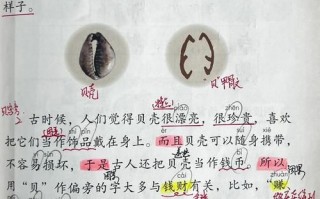 样子。
贝壳
贝 甲骨文
piào zhēn
古时候，人们觉得贝壳很漂亮，很珍贵，喜欢
shì pǐn
把它们当作饰品戴在身上。而且贝壳可以随身携带，
不容易损坏，于是古人还把贝壳当作钱币。所以
cái zhuàn
用“贝”作偏旁的字大多与钱财有关，比如，“赚